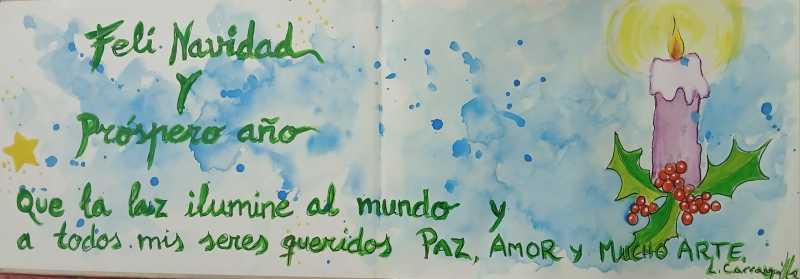 Feli Navidad
Y
Próspero año
Que la laz ilumine al mundo y
a todos mis seres queridos PAZ, AMOR y MUCHO ARTE.